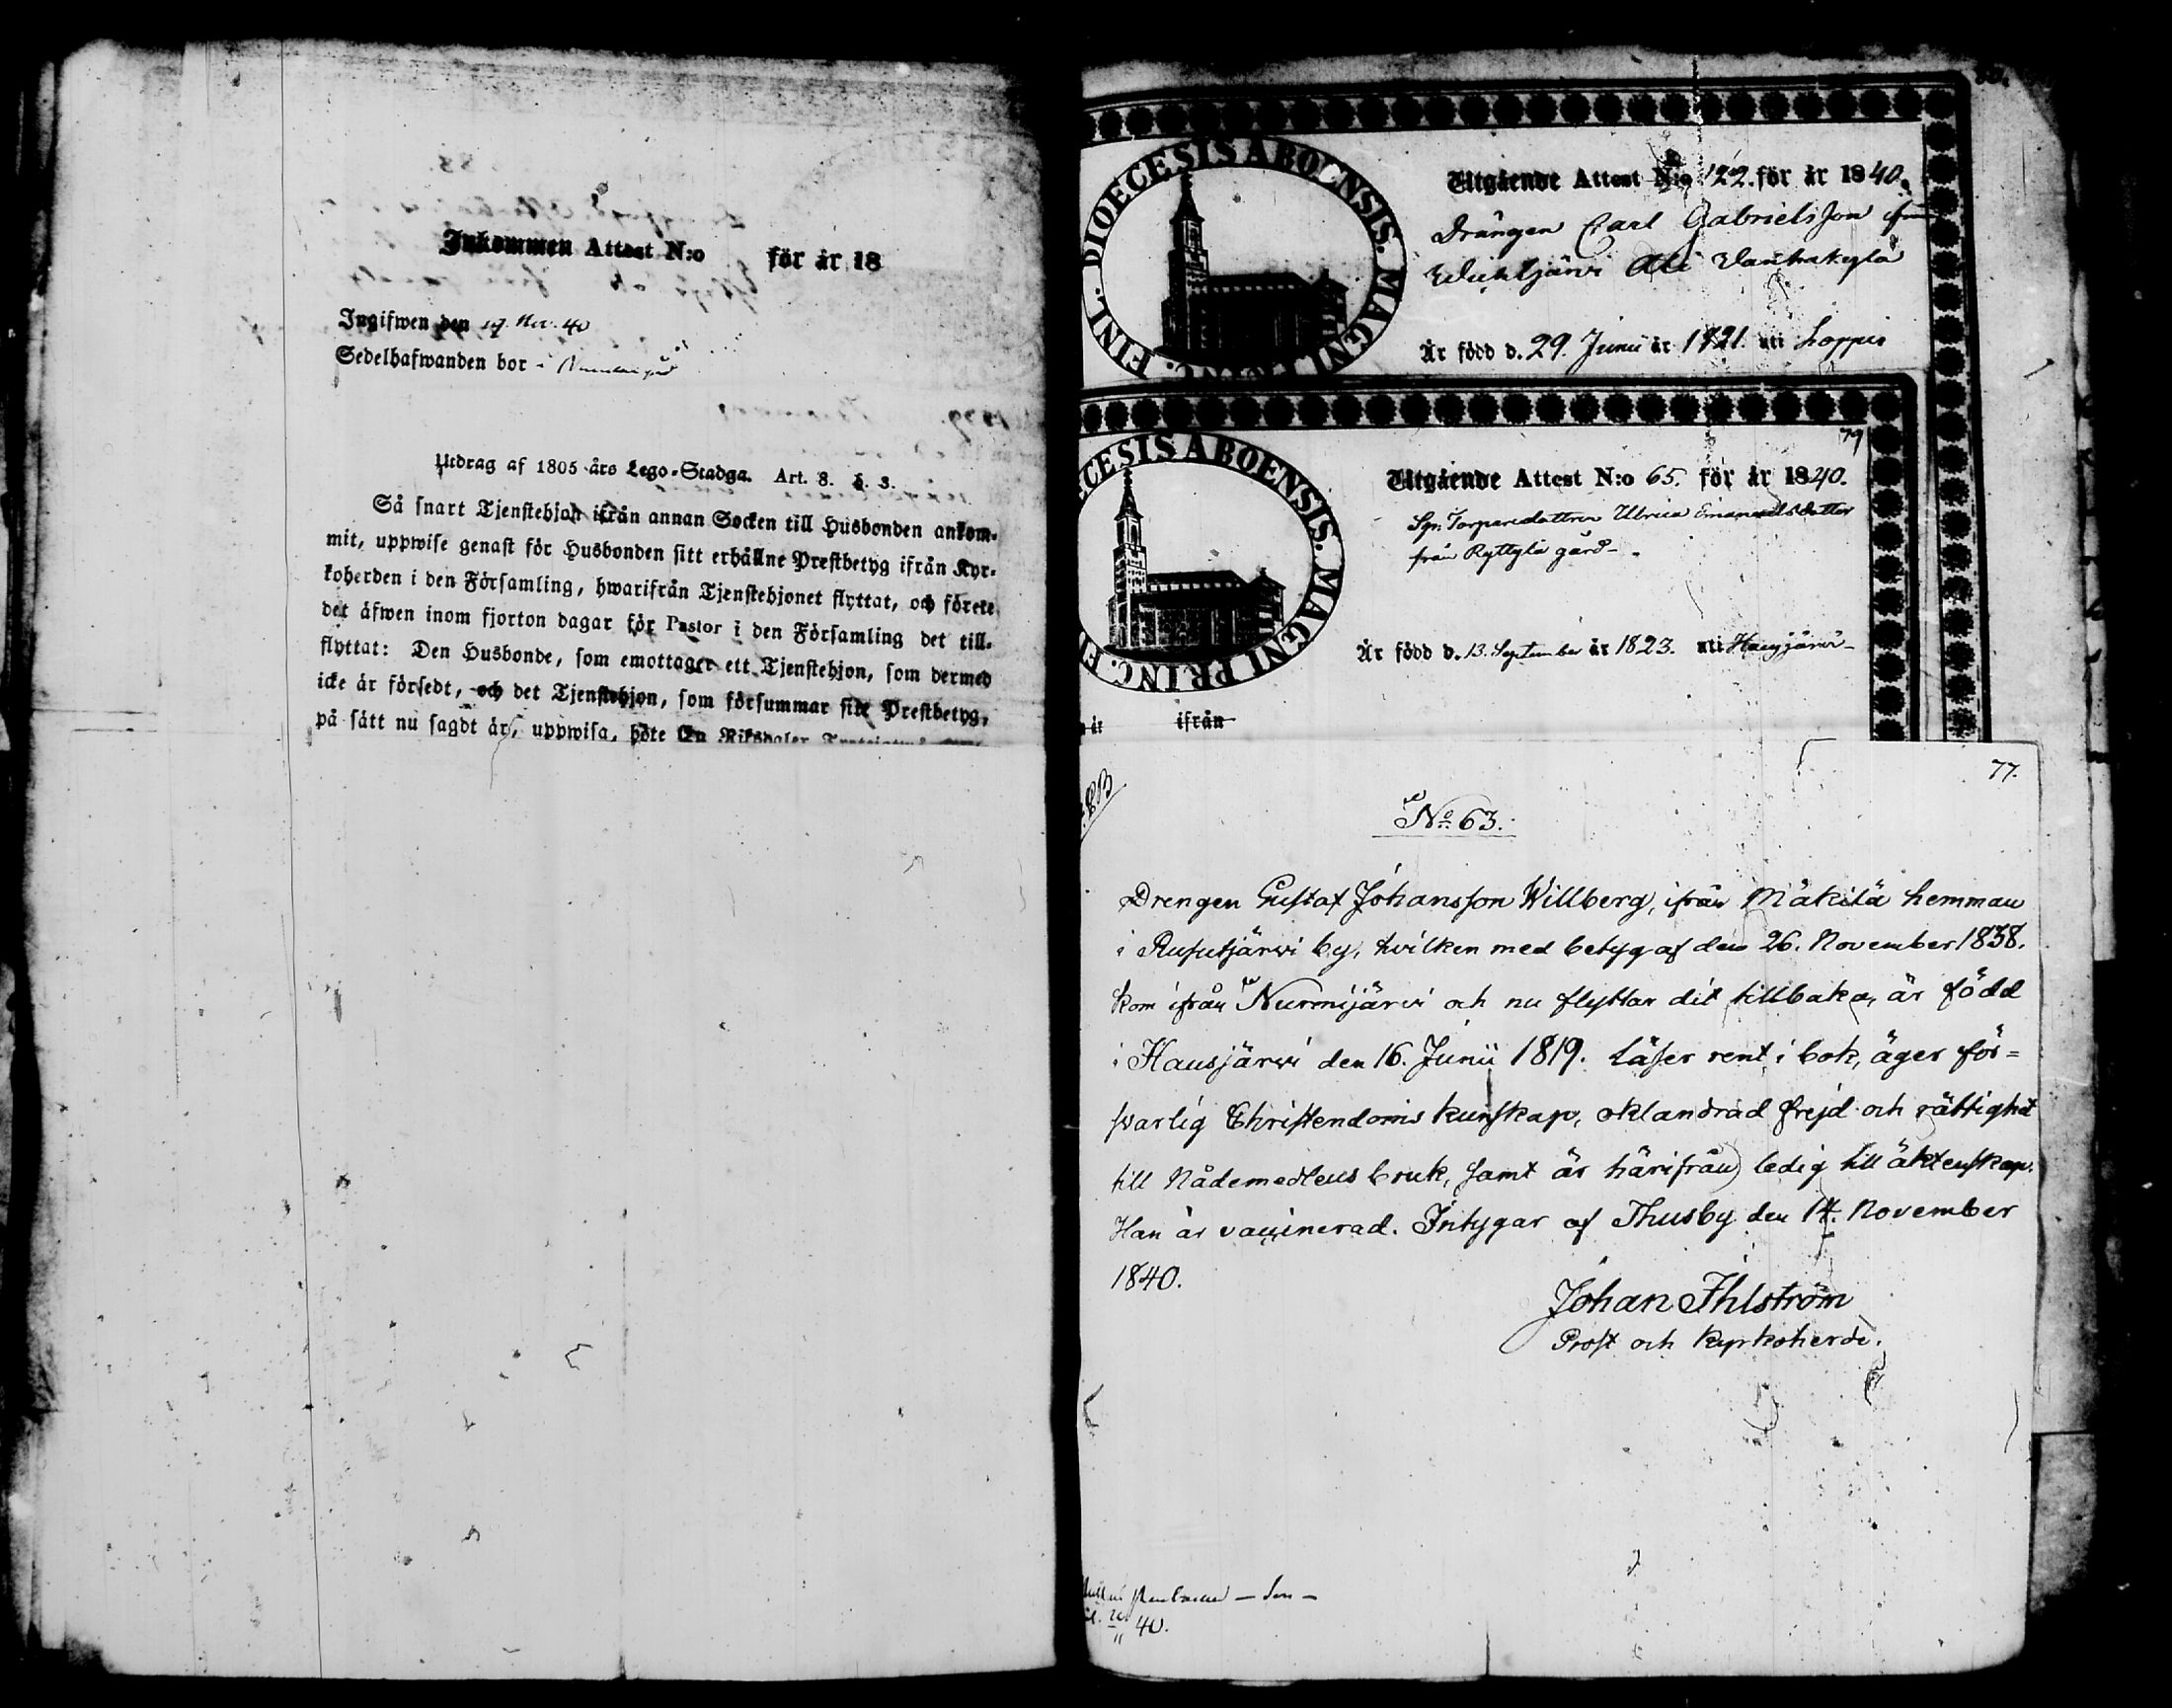 Inkommen Attest N:o för år 18
Ingifwen den 19. Nov. 40
Sedelhafwanden bor i
Utdrag af 1805 års Lego-Stadga. Art. 8. §. 3.
Så snart Tjenstehjon ifrån annan Socken till Husbonden ankom-
mit, uppwise genast för Husbonden sitt erhållne Prestbetyg ifrån Kyr-
koherden i den Församling, hwarifrån Tjenstehjonet flyttat, och förete
det äfwen inom fjorton dagar för Pastor i den Församling det till-
flyttat: Den Husbonde, som emottager ett Tjenstehjon, som dermed
icke är försedt, och det Tjenstehjon, som försummar sitt Prestbetyg,
på sätt nu sagdt är, uppwisa, böte En Riksdaler
DIOECESIS ABOENSIS. MAGNI PRINC. FINL.
Utgående Attest N:o 122. för år 1840.
Drängen Carl Gabrielsson från
Wichtjärwi Vanhakylä
Är född d. 29. Junii år 1821. uti Loppis
79
CESIS ABOENSIS. MAGNI PRINC. F
Utgående Attest N:o 65. för år 1840.
Sqn: Torparedottren Ulrica Emanuelsdotter
från Ryttylä gård
Är född d. 13. September år 1823. uti Hausjärwi
är ifrån
77.
No 63.
Drengen Gustaf Johansson Willberg, ifrån Mäkilä hemman
i Rusutjärwi by, hvilken med betyg af den 26. November 1838.
kom ifrån Nurmijärwi och nu flyttar dit tillbaka, är född
i Hausjärwi den 16. Junii 1819. Läser rent i bok, äger för=
svarlig Christendoms kunskap, oklandrad frejd och rättighet
till Nådemedlens bruk, samt är härifrån ledig till äktenskap.
Han är vaccinerad. Intygar af Thusby den 14. November
1840.
Johan Ihlström
Prost och Kyrkoherde.
40.